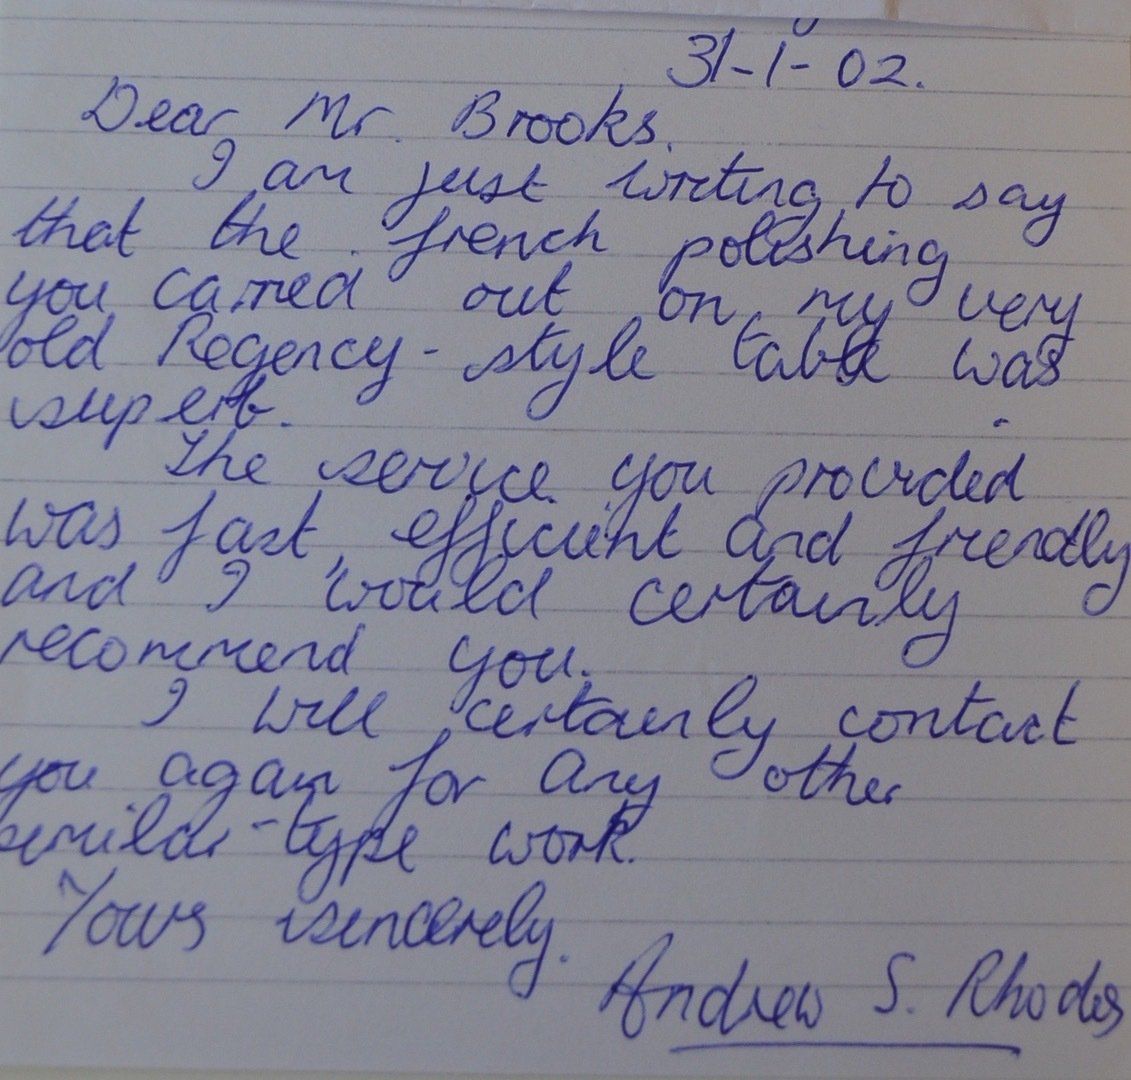 31-1-02.
Dear Mr. Brooks,
I am just writing to say
that the french polishing
you carried out on my very
old Regency-style table was
superb.
The service you provided
was fast, efficient and friendly
and I would certainly
recommend you.
I will certainly contact
you again for any other
similar-type work.
Yours sincerely.
Andrew S. Rhodes